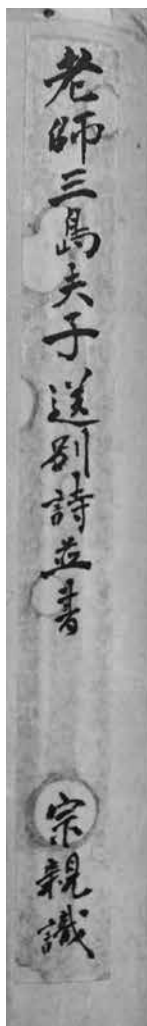 老師三島夫子送別詩並書
宗親識